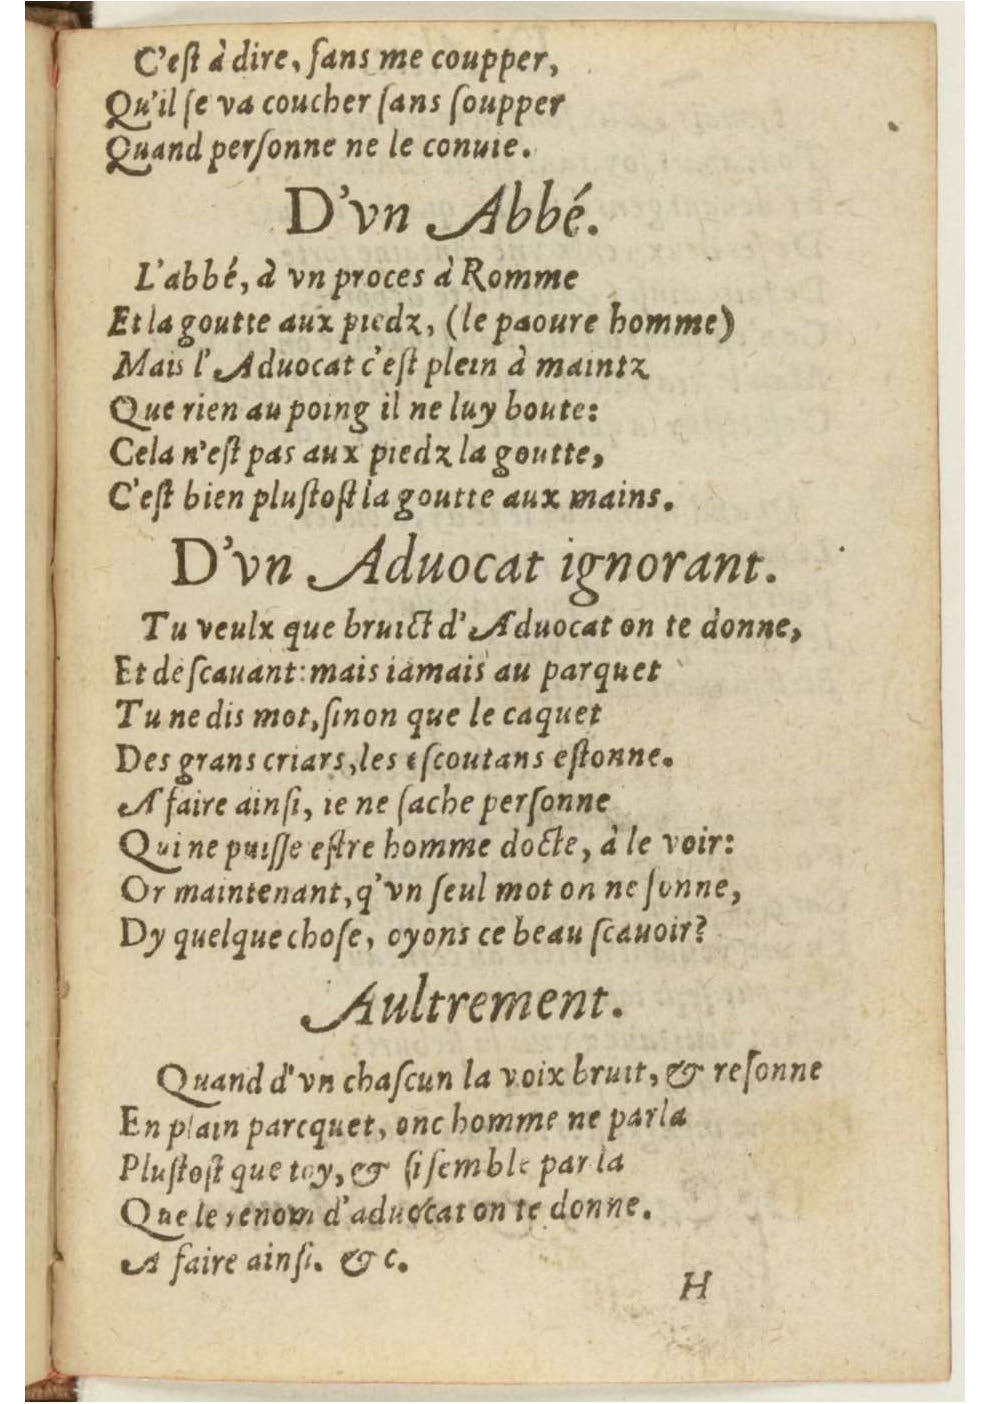 C'eſt à dire, ſans me coupper,
Qu'il ſe va coucher ſans ſoupper
Quand perſonne ne le conuie.
D'vn Abbé.
L'abbé, à vn proces à Romme
Et la goutte aux piedz, (le paoure homme)
Mais l'Aduocat c'eſt plein à maintz
Que rien au poing il ne luy boute:
Cela n'eſt pas aux piedz la goutte,
C'eſt bien pluſtoſt la goutte aux mains.
D'vn Aduocat ignorant.
Tu veulx que bruict d'Aduocat on te donne,
Et de ſcauant: mais iamais au parquet
Tu ne dis mot, ſinon que le caquet
Des grans criars, les eſcoutans eſtonne.
A faire ainſi, ie ne ſache perſonne
Qui ne puiſſe eſtre homme docte, à le voir:
Or maintenant, q'vn ſeul mot on ne ſonne,
Dy quelque choſe, oyons ce beau ſcauoir?
Aultrement.
Quand d'vn chaſcun la voix bruit, & reſonne
En plain parcquet, onc homme ne parla
Pluſtoſt que toy, & ſi ſemble par la
Que le renom d'aduocat on te donne.
A faire ainſi. & c.
H